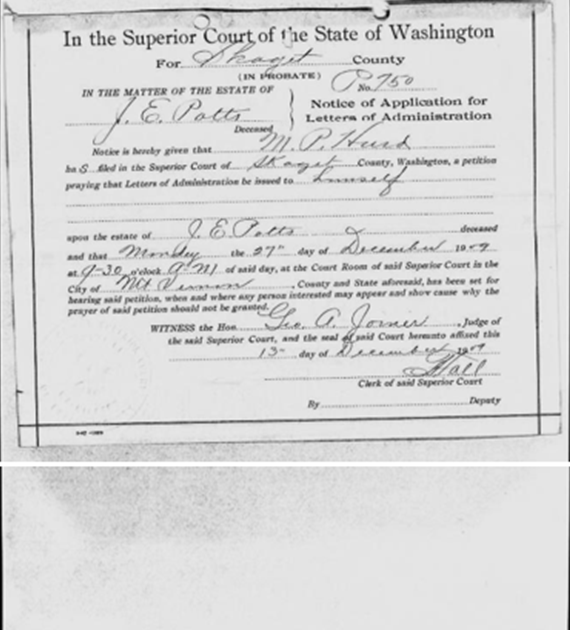 In the Superior Court of the State of Washington
For Skagit County
(IN PROBATE)
No. P 750
IN THE MATTER OF THE ESTATE OF
J. E. Potts
Deceased
Notice of Application for
Letters of Administration
Notice is hereby given that M. P. Hurd
has filed in the Superior Court of Skagit County, Washington, a petition
praying that Letters of Administration be issued to himself
upon the estate of J. E. Potts deceased
and that Monday the 27th day of December 1909
at 9-30 o'clock A. M. of said day, at the Court Room of said Superior Court in the
City of Mt Vernon, County and State aforesaid, has been set for
hearing said petition, when and where any person interested may appear and show cause why the
prayer of said petition should not be granted.
WITNESS the Hon. Geo. A. Joiner, Judge of
the said Superior Court, and the seal of said Court hereunto affixed this
13th day of December 1909
Clerk of said Superior Court
By Deputy